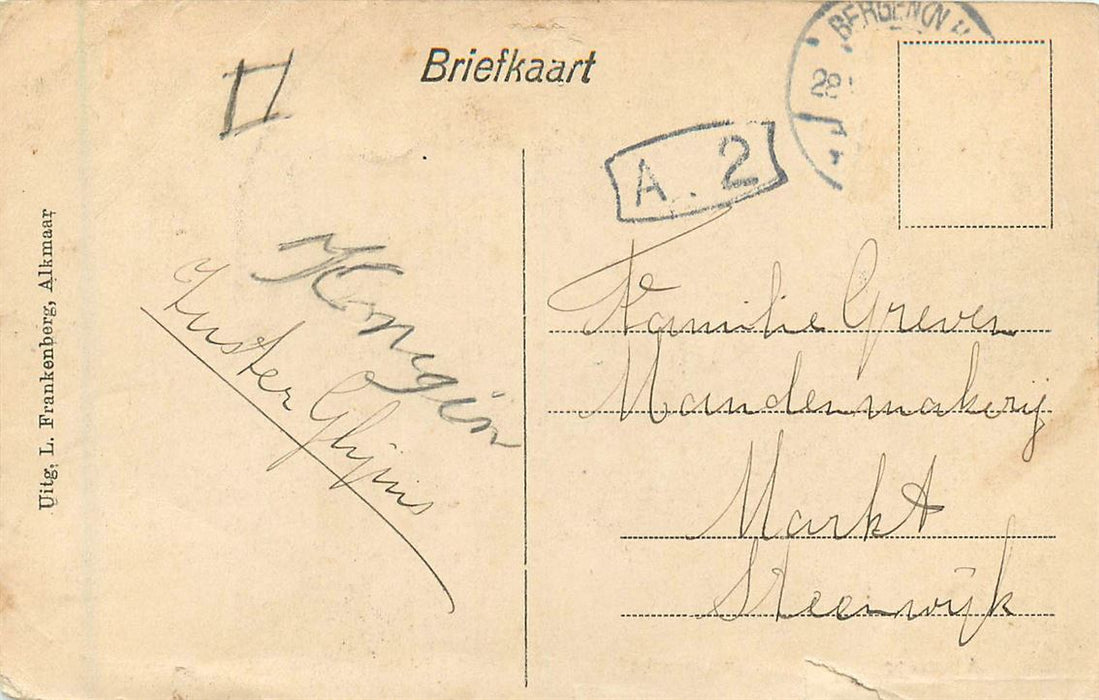 Briefkaart
BERGEN(N
22
A. 2
Uitg. L. Frankenberg, Alkmaar
Zuster
Familie Greven
Mandenmakerij
Markt
Steenwijk